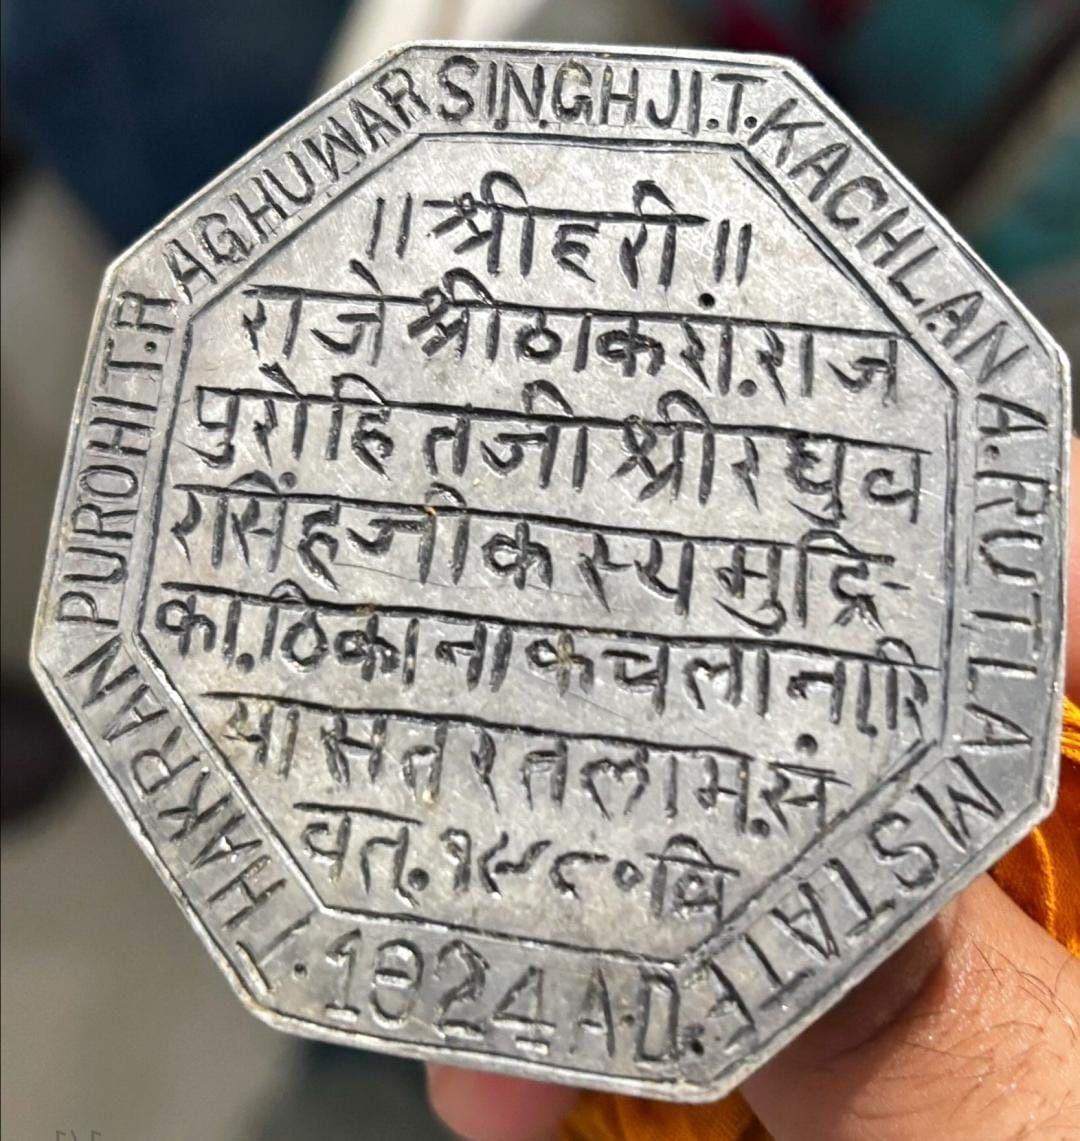 THAKRAN PUROHIT.RAGHUWARSINGHJI.T.KACHLANA.RUTLAMSTATE.
.1924 A.D.
॥ श्री हरी ॥
राजे श्री ठाकरां.राज
पुरोहितजी श्री रघुव
रसिंहजी कस्य मुद्रि-
का.ठिकाना कचलाना रि
यासत रतलाम.सं
वत्.१९८० वि